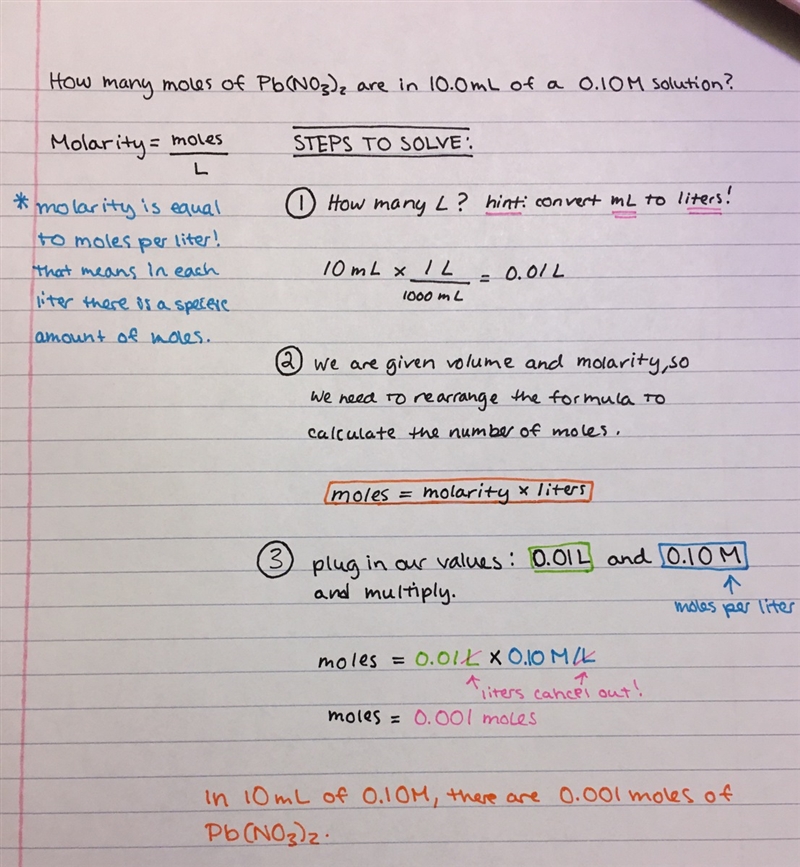 How many moles of Pb(NO₃)₂ are in 10.0mL of a 0.10M solution?
Molarity = moles
L
* molarity is equal
to moles per liter!
that means in each
liter there is a
amount of moles.
STEPS TO SOLVE:
① How many L? hint: convert mL to liters!
10 mL × 1 L = 0.01 L
1000 mL
② we are given volume and molarity, so
we need to rearrange the formula to
calculate the number of moles.
moles = molarity × liters
③ plug in our values: 0.01L and 0.10 M
and multiply.
↑
moles per liter
moles = 0.01L × 0.10 M/L
↑ liters cancel out! ↑
moles = 0.001 moles
In 10mL of 0.10M, there are 0.001 moles of
Pb(NO₃)₂.